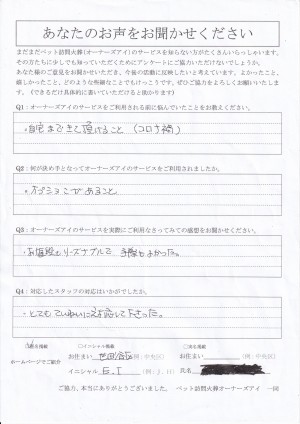 あなたのお声をお聞かせください
まだまだペット訪問火葬(オーナーズアイ)のサービスを知らない方がたくさんいらっしゃいます。
その方たちに少しでも知っていただくためにアンケートにご協力いただけないでしょうか。
あなた様のご意見をお聞かせいただき、今後の活動に反映したいと考えています。よかったこと、
嬉しかったこと、どのような些細なことでもけっこうです。ぜひご協力をよろしくお願いいたし
ます。(できるだけ具体的に書いていただけると助かります)
Q1：オーナーズアイのサービスをご利用される前に悩んでいたことをお教えください。
・自宅まできて頂けること (コロナ禍)
Q2：何が決め手となってオーナーズアイのサービスをご利用されましたか。
であること
Q3：オーナーズアイのサービスを実際にご利用なさってみての感想をお聞かせください。
・お値段もリーズナブルで よかった。
Q4：対応したスタッフの対応はいかがでしたか。
・とてもていねいに対応して下さった。
ホームページでご紹介
□イニシャル掲載
お住まい 世田谷区 (例：中央区)
イニシャル E.I (例：J.H)
お住まい (例：中央区)
氏名
ご協力、本当にありがとうございました。 ペット訪問火葬オーナーズアイ 一同